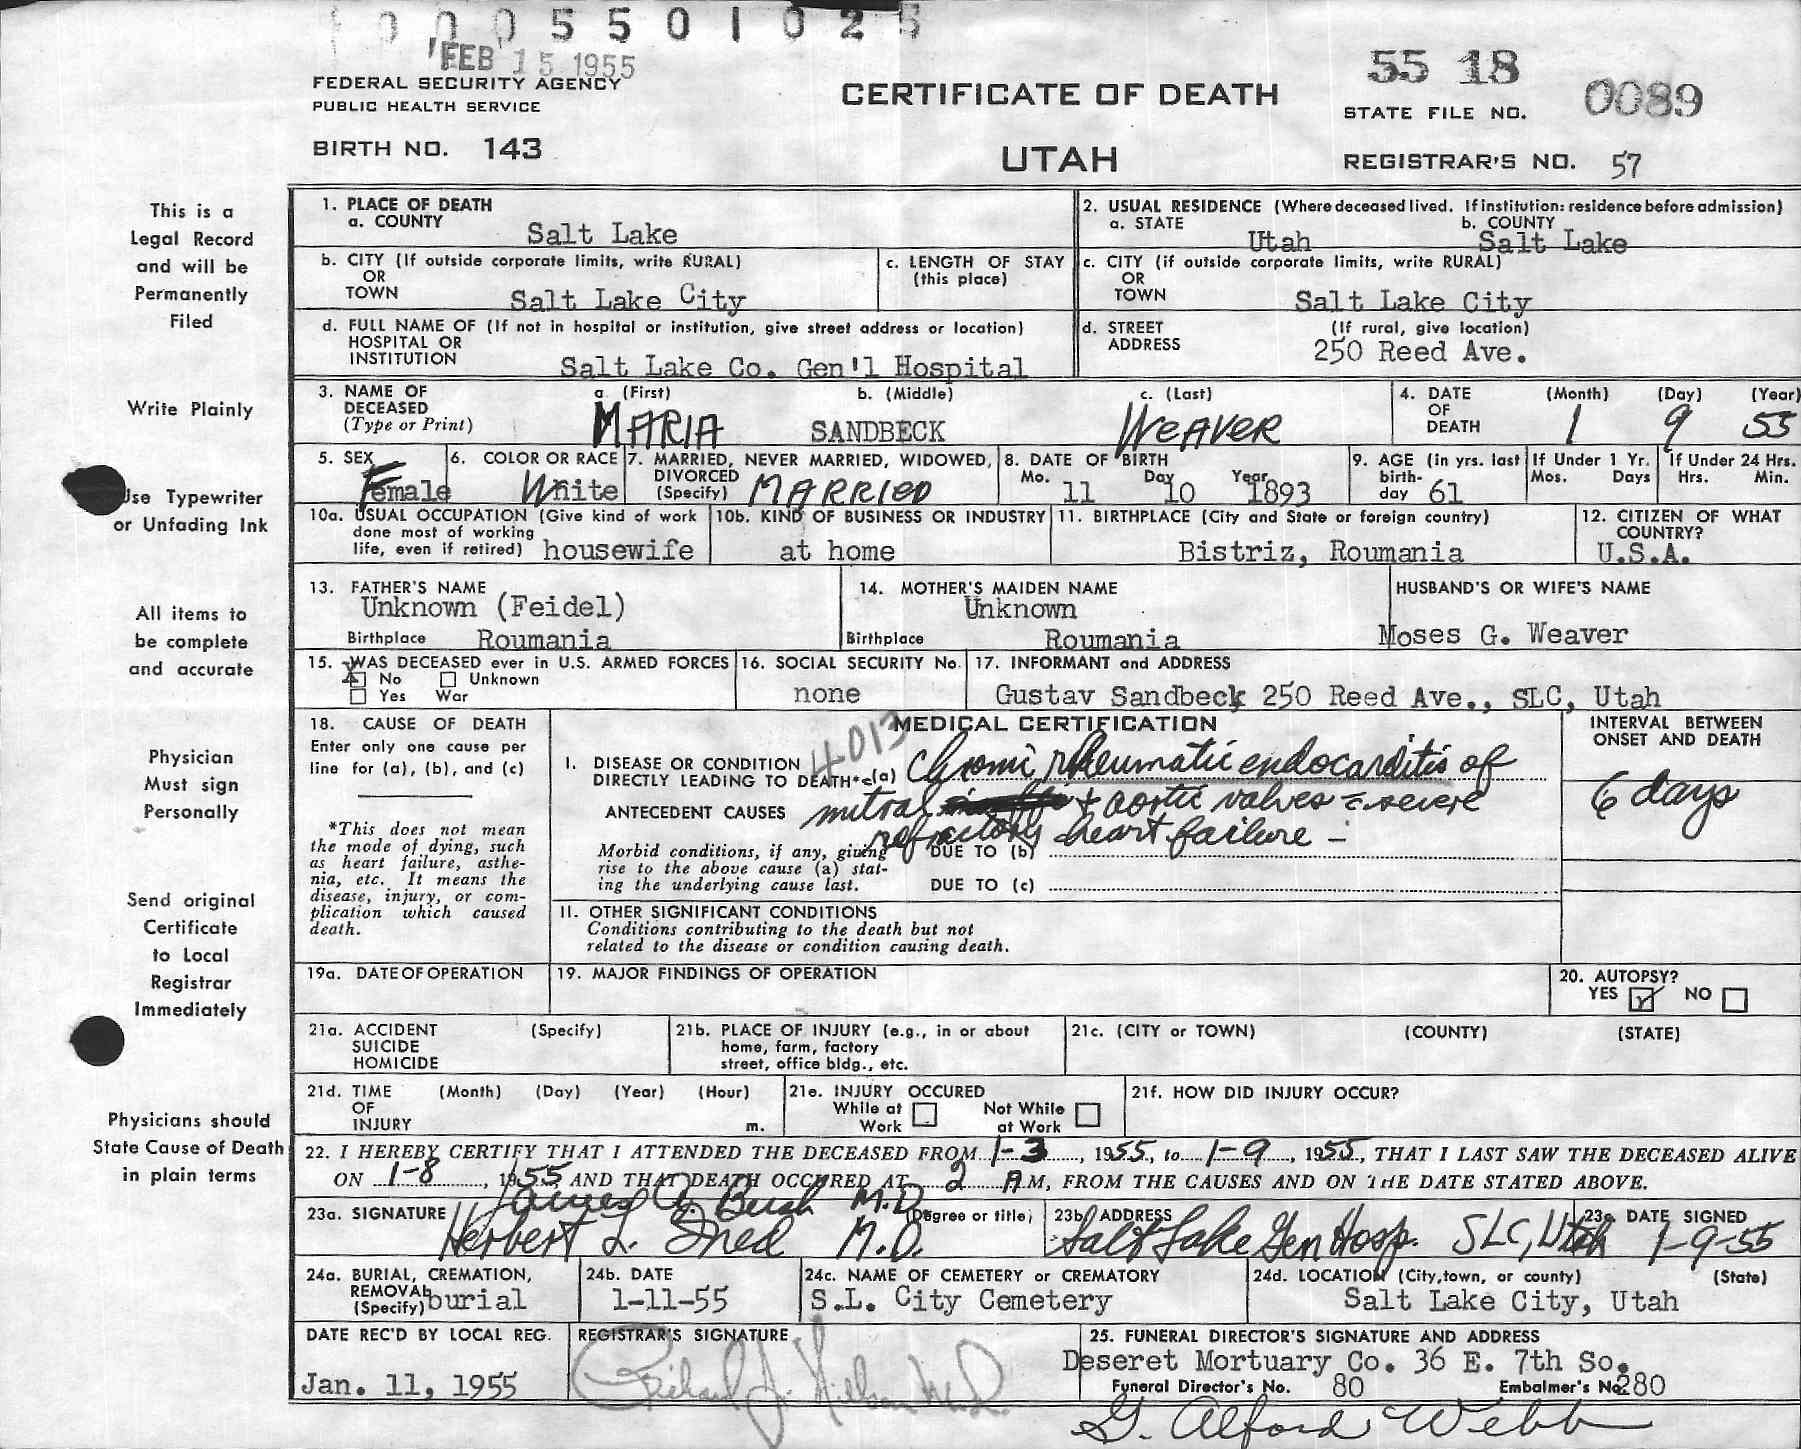 0005501025
FEB 15 1955
FEDERAL SECURITY AGENCY
PUBLIC HEALTH SERVICE
BIRTH NO. 143
CERTIFICATE OF DEATH
UTAH
55 18
STATE FILE NO. 0089
REGISTRAR'S NO. 57
This is a
Legal Record
and will be
Permanently
Filed
Write Plainly
Use Typewriter
or Unfading Ink
All items to
be complete
and accurate
Physician
Must sign
Personally
Send original
Certificate
to Local
Registrar
Immediately
Physicians should
State Cause of Death
in plain terms
1. PLACE OF DEATH
a. COUNTY Salt Lake
2. USUAL RESIDENCE (Where deceased lived. If institution: residence before admission)
a. STATE Utah b. COUNTY Salt Lake
b. CITY (If outside corporate limits, write RURAL)
OR
TOWN Salt Lake City
c. LENGTH OF STAY
(this place)
c. CITY (if outside corporate limits, write RURAL)
OR
TOWN Salt Lake City
d. FULL NAME OF (If not in hospital or institution, give street address or location)
HOSPITAL OR
INSTITUTION Salt Lake Co. Gen'l Hospital
d. STREET (If rural, give location)
ADDRESS 250 Reed Ave.
3. NAME OF DECEASED
(Type or Print)
a. (First) b. (Middle) c. (Last)
MARIA SANDBECK WEAVER
4. DATE OF DEATH (Month) (Day) (Year)
1 9 55
5. SEX Female
6. COLOR OR RACE White
7. MARRIED, NEVER MARRIED, WIDOWED,
DIVORCED (Specify) MARRIED
8. DATE OF BIRTH
Mo. 11 Day 10 Year 1893
9. AGE (in yrs. last birthday 61
If Under 1 Yr. Mos. Days
If Under 24 Hrs. Hrs. Min.
10a. USUAL OCCUPATION (Give kind of work
done most of working
life, even if retired) housewife
10b. KIND OF BUSINESS OR INDUSTRY
at home
11. BIRTHPLACE (City and State or foreign country)
Bistriz, Roumania
12. CITIZEN OF WHAT
COUNTRY?
U.S.A.
13. FATHER'S NAME
Unknown (Feidel)
Birthplace Roumania
14. MOTHER'S MAIDEN NAME
Unknown
Birthplace Roumania
HUSBAND'S OR WIFE'S NAME
Moses G. Weaver
15. WAS DECEASED ever in U.S. ARMED FORCES
X No Unknown
Yes War
16. SOCIAL SECURITY No.
none
17. INFORMANT and ADDRESS
Gustav Sandbeck 250 Reed Ave., SLC, Utah
18. CAUSE OF DEATH
Enter only one cause per
line for (a), (b), and (c)
*This does not mean
the mode of dying, such
as heart failure, asthe-
nia, etc. It means the
disease, injury, or com-
plication which caused
death.
4013
MEDICAL CERTIFICATION
I. DISEASE OR CONDITION
DIRECTLY LEADING TO DEATH* (a) Chronic rheumatic endocarditis of
ANTECEDENT CAUSES mitral + aortic valves = severe
refractory heart failure -
Morbid conditions, if any, giving
rise to the above cause (a) stat-
ing the underlying cause last.
DUE TO (b)
DUE TO (c)
INTERVAL BETWEEN
ONSET AND DEATH
6 days
II. OTHER SIGNIFICANT CONDITIONS
Conditions contributing to the death but not
related to the disease or condition causing death.
19a. DATE OF OPERATION
19. MAJOR FINDINGS OF OPERATION
20. AUTOPSY?
YES NO
21a. ACCIDENT (Specify)
SUICIDE
HOMICIDE
21b. PLACE OF INJURY (e.g., in or about
home, farm, factory
street, office bldg., etc.
21c. (CITY or TOWN) (COUNTY) (STATE)
21d. TIME (Month) (Day) (Year) (Hour)
OF
INJURY m.
21e. INJURY OCCURED
While at Work Not While at Work
21f. HOW DID INJURY OCCUR?
22. I HEREBY CERTIFY THAT I ATTENDED THE DECEASED FROM 1-3, 1955, to 1-9, 1955, THAT I LAST SAW THE DECEASED ALIVE
ON 1-8, 1955 AND THAT DEATH OCCURED AT 2 AM, FROM THE CAUSES AND ON THE DATE STATED ABOVE.
James A. Bush M.D.
23a. SIGNATURE (Degree or title)
Herbert L. Fred M.D.
23b. ADDRESS
Salt Lake Gen Hosp. SLC, Utah
23c. DATE SIGNED
1-9-55
24a. BURIAL, CREMATION,
REMOVAL
(Specify) burial
24b. DATE
1-11-55
24c. NAME OF CEMETERY or CREMATORY
S.L. City Cemetery
24d. LOCATION (City, town, or county) (State)
Salt Lake City, Utah
DATE REC'D BY LOCAL REG.
Jan. 11, 1955
REGISTRAR'S SIGNATURE
Richard J. Nielsen M.D.
25. FUNERAL DIRECTOR'S SIGNATURE AND ADDRESS
Deseret Mortuary Co. 36 E. 7th So.
Funeral Director's No. 80 Embalmer's No. 280
G. Alford Webb